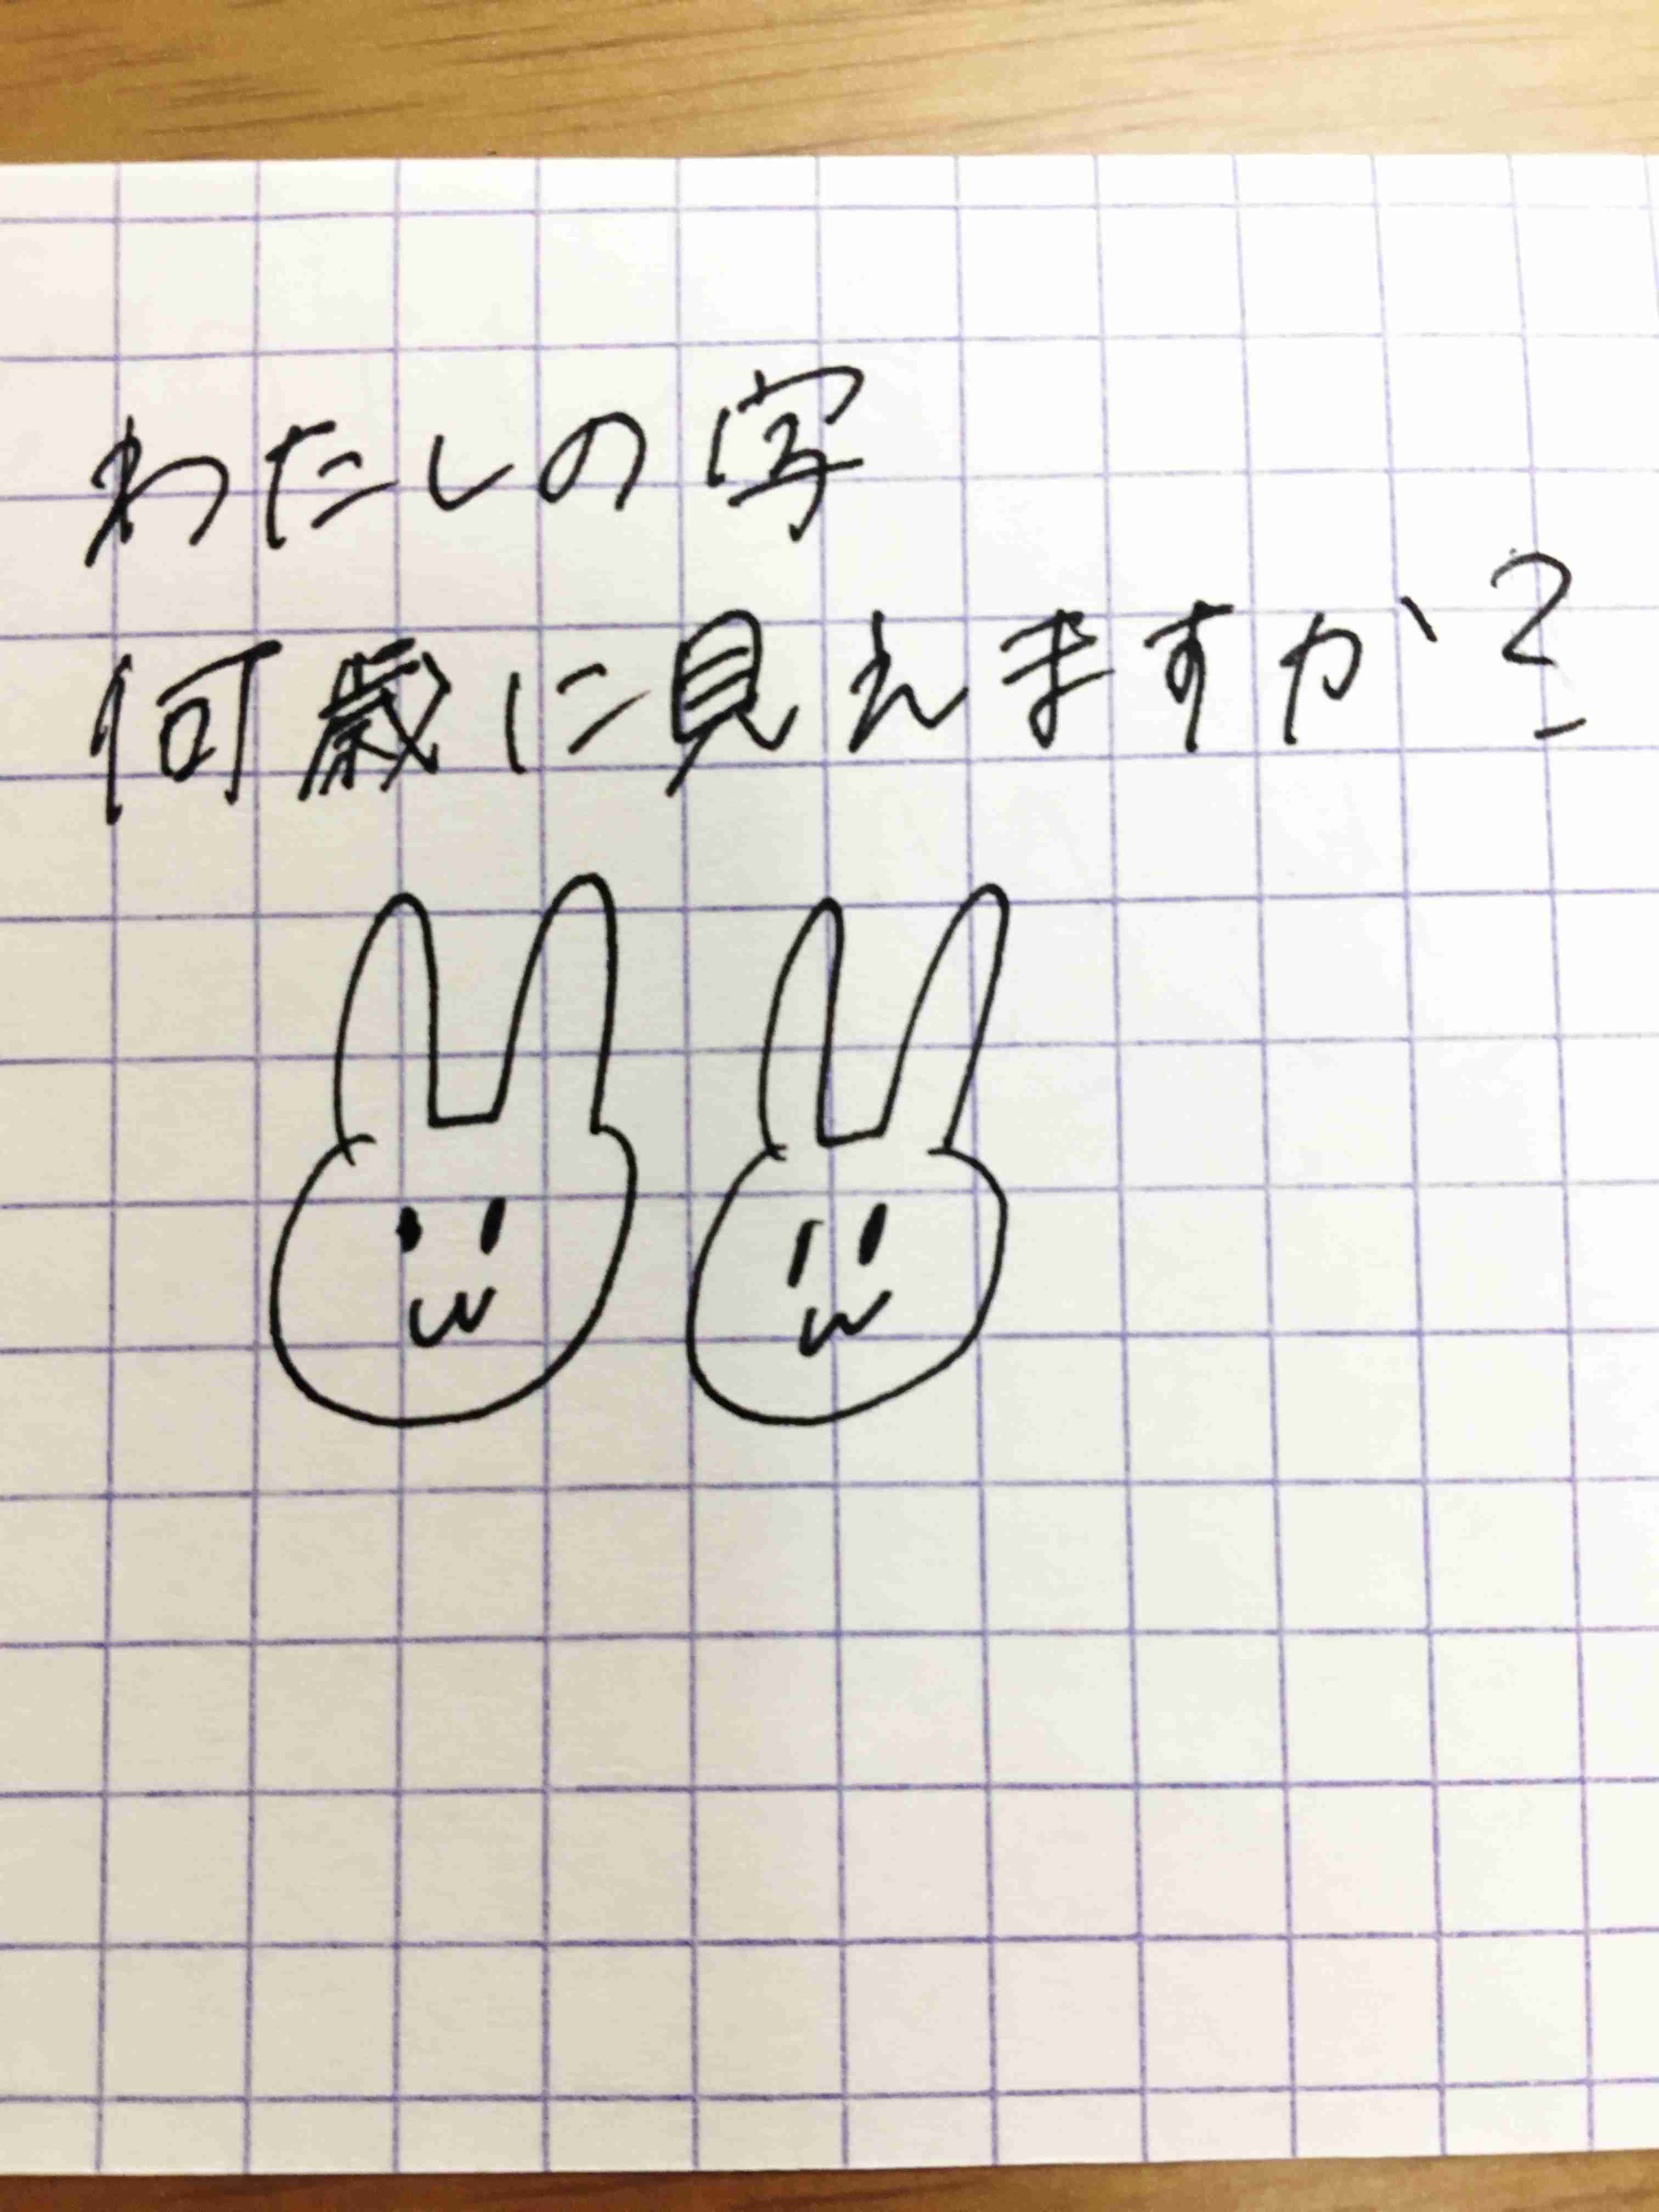 わたしの字
何歳に見えますか?